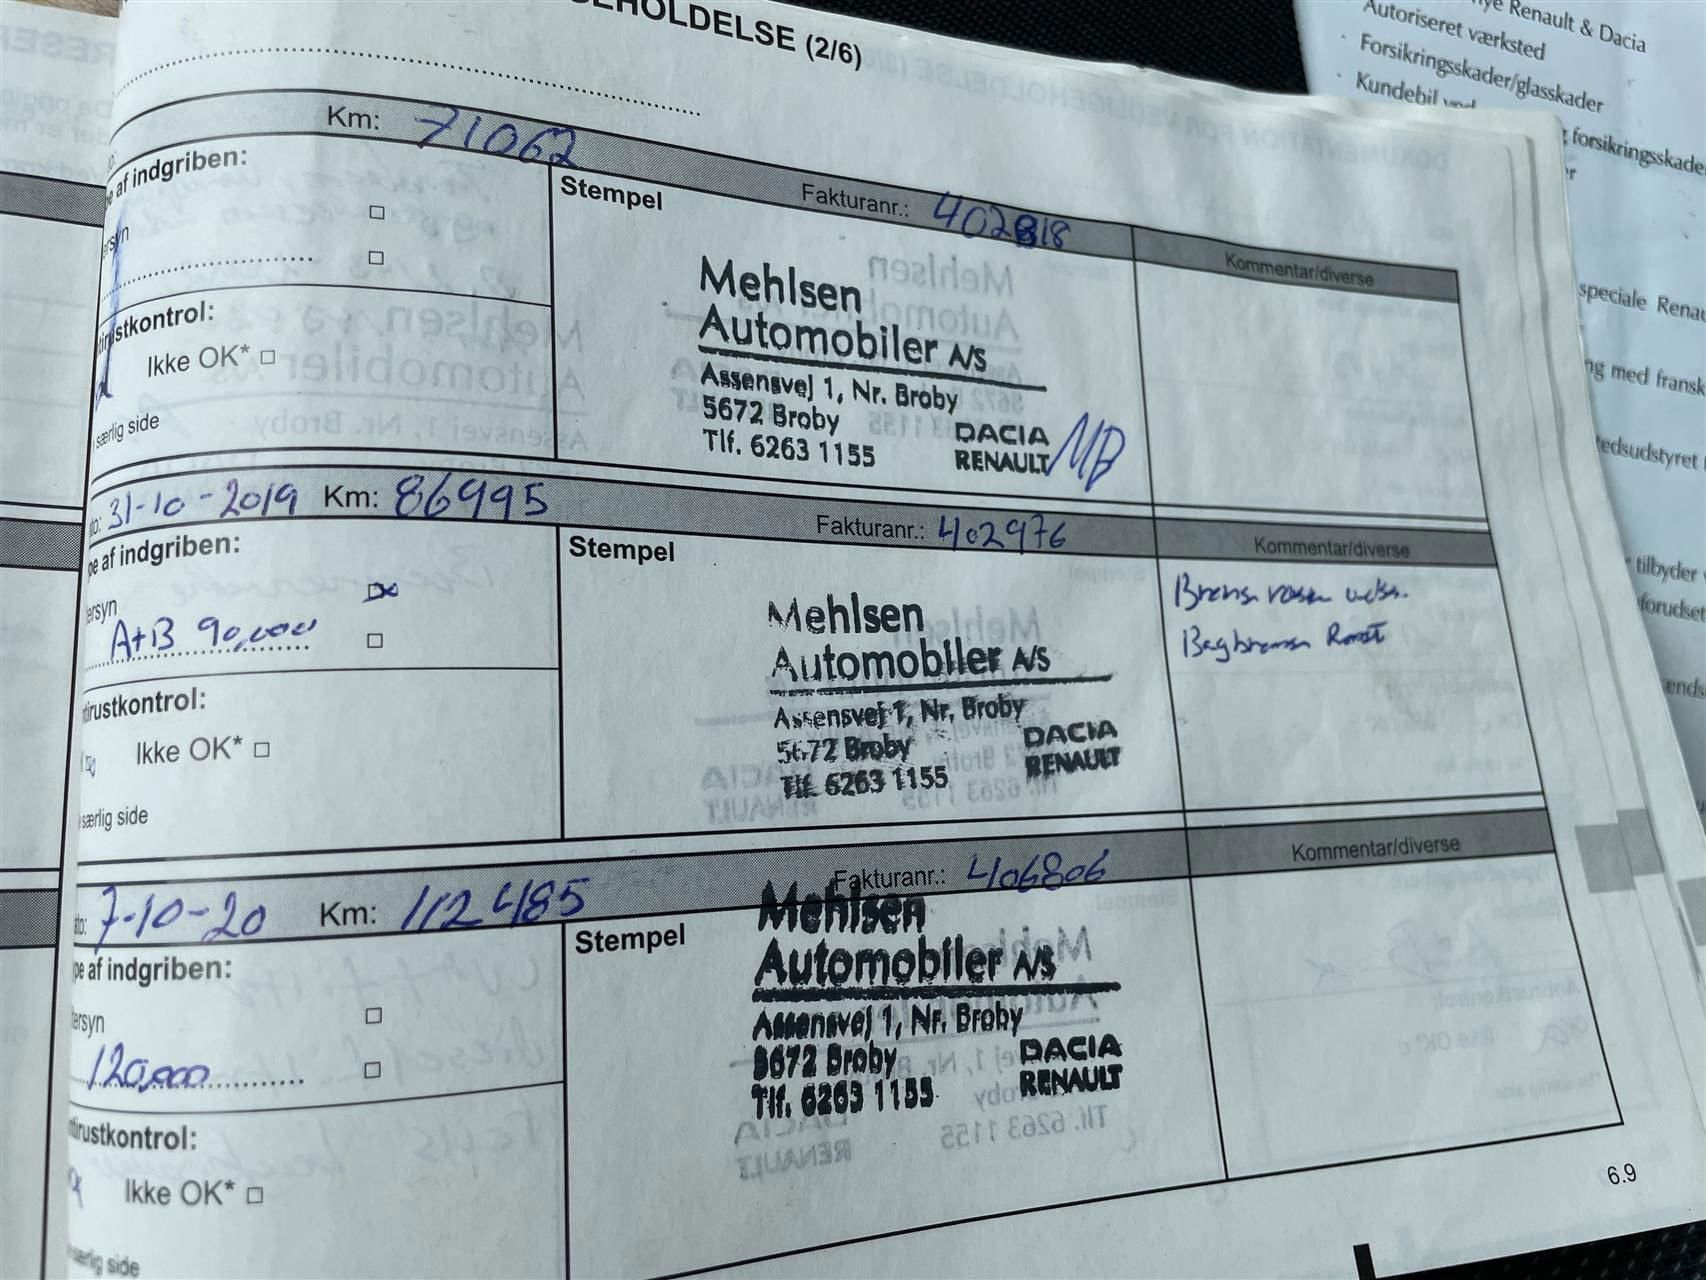 EHOLDELSE (2/6)
Km: 71062
Fakturanr.: 402818
Kommentar/diverse
af indgriben:
Stempel
Mehlsen
Automobiler A/S
Assensvej 1, Nr. Broby
5672 Broby
Tlf. 6263 1155
DACIA
RENAULT
MB
Ikke OK* □
særlig side
31-10-2019 Km: 86995
Fakturanr.: 402976
Kommentar/diverse
pe af indgriben:
Stempel
ersyn
A+B 90,000
Mehlsen
Automobiler A/S
Assensvej 1, Nr. Broby
5672 Broby
Tlf. 6263 1155
DACIA
RENAULT
tirustkontrol:
Ikke OK* □
særlig side
7-10-20 Km: 112485
Fakturanr.: 406806
Kommentar/diverse
pe af indgriben:
Stempel
ersyn
120,000
Mehlsen
Automobiler A/S
Assensvej 1, Nr. Broby
5672 Broby
Tlf. 6263 1155
DACIA
RENAULT
irustkontrol:
Ikke OK* □
særlig side
6.9
nye Renault & Dacia
Autoriseret værksted
Forsikringsskader/glasskader
Kundebil ved
forsikringsskade
speciale Renau
ng med fransk
tedsudstyret
tilbyder
forudset